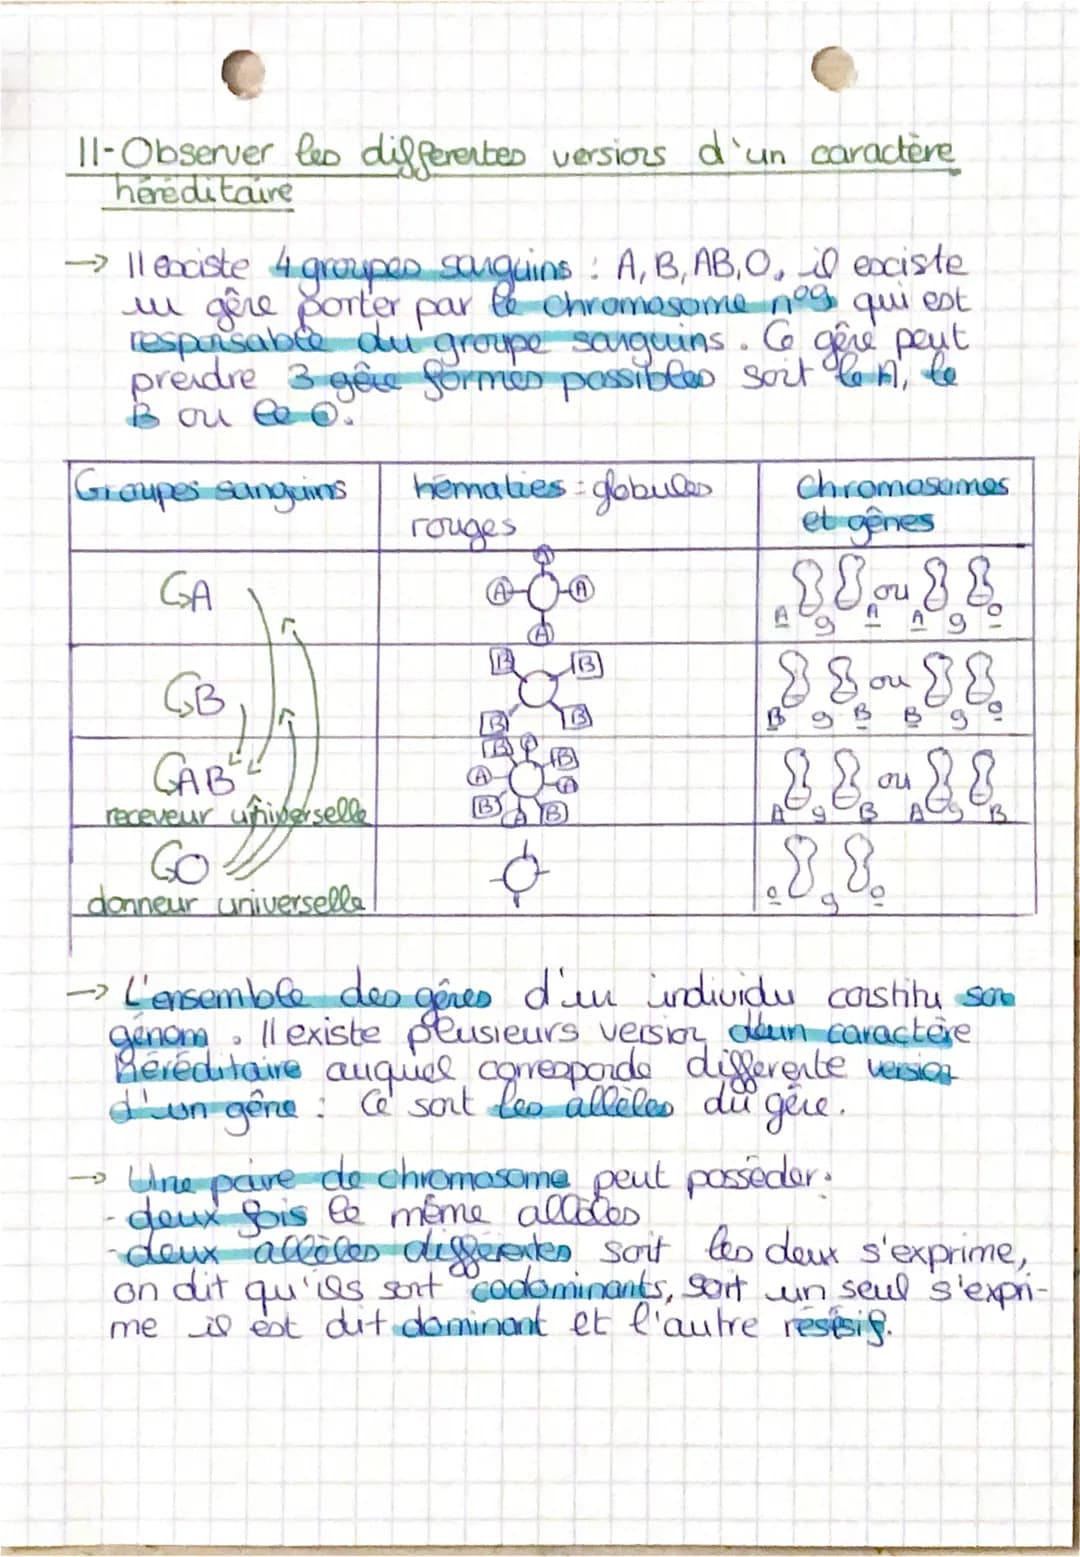 II-Observer les differentes versions d'un caractère
héréditaire
→ Il exciste 4 groupes sanguins : A, B, AB, O, il exciste
un gêne porter par le chromosome n°9 qui est
responsable du groupe sanguins. Ce gêne peut
prendre 3 gêne formes possibles soit le A, le
B ou le O.
Groupes sanguins hématies = globules Chromosomes
rouges et gênes
GA A A A A A 9 A ou A 9 O
GB B B B B B 9 B ou B 9 O
GAB B A B A A B A B A 9 B ou A 9 B
receveur universelle
GO O 9 O
donneur universelle
→ L'ensemble des gênes d'un individu constitu son
génom. Il existe plusieurs version d'un caractère
Héréditaire auquel corresponde differente version
d'un gêne : Ce sont les allèles du gêne.
→ Une paire de chromosome peut posséder :
- deux fois le même allèles
- deux allèles différentes soit les deux s'exprime,
on dit qu'ils sont codominants, soit un seul s'expri-
me il est dit dominant et l'autre résésif.